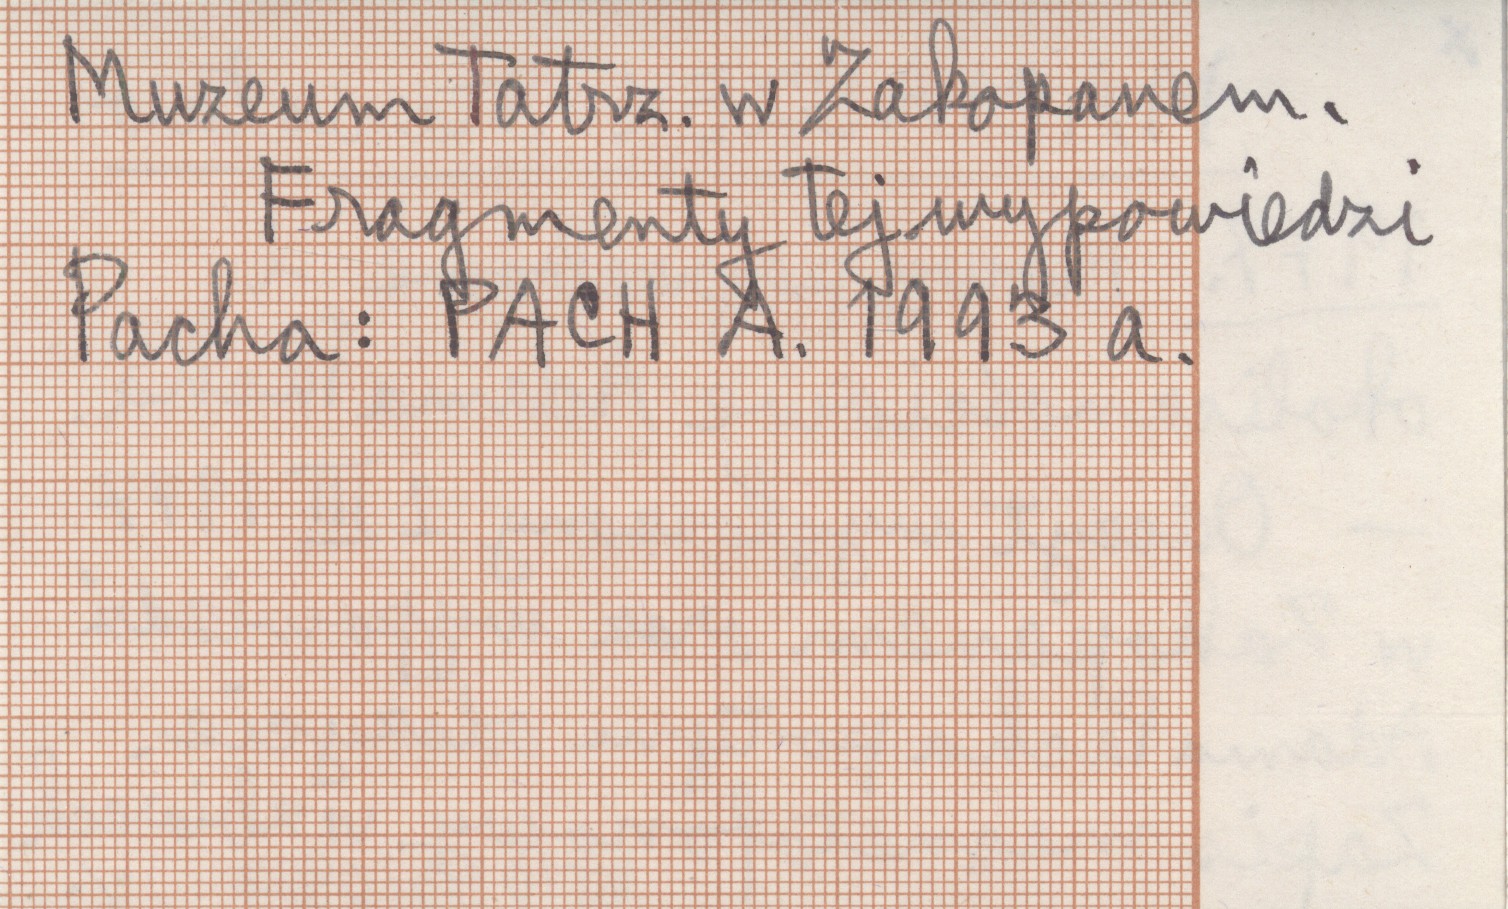 Muzeum Tatrz. w Zakopanem.
Fragmenty tej wypowiedzi
Pacha: PACH A. 1993 a.